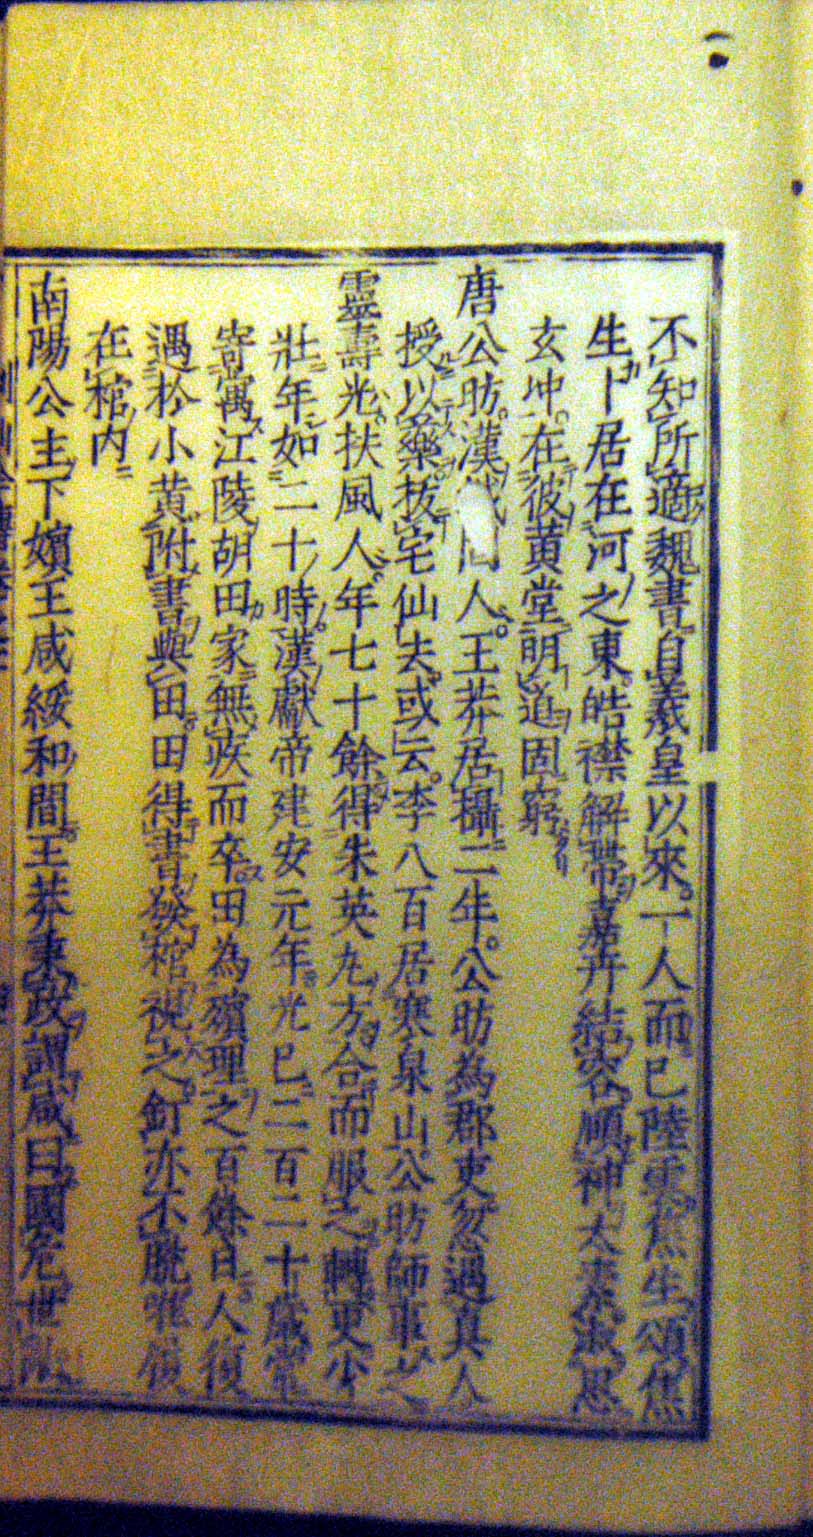 不知所適魏書自羲皇以來一人而已陸雲焦生頌焦
生卜居在河之東皓襟解帶喜卉結容順神太素淑思
玄冲在彼黄堂明道固窮
唐公昉漢人王莽居攝二年公昉為郡吏忽遇真人
授以藥拔宅仙去或云李八百居寒泉山公昉師事之
靈壽光扶風人年七十餘得朱英丸方合而服之轉更少
壯年如二十時漢獻帝建安元年光已二百二十歲常
寄寓江陵胡田家無疾而卒田為殯理之百餘日人復
遇於小黄附書與田田得書發棺視之釘亦不脱唯履
在棺内
南陽公主下嬪王咸綏和間王莽秉政謂咸曰國危世亂